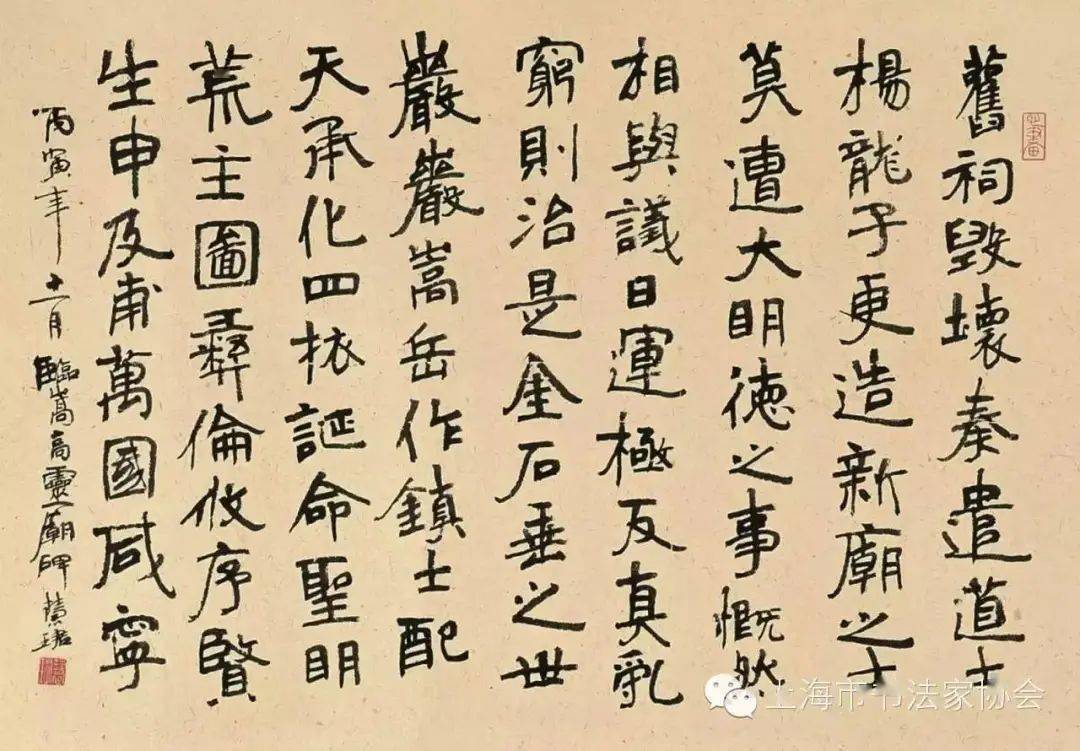 舊祠毀壞奏遣道士
楊龍子更造新廟之士
莫遭大明徳之事慨然
相與議曰運極反真乳
窮則治是金石垂之世
巖巖嵩岳作鎮土配
天承化四捄誕命聖明
荒主圖彝倫攸序賢
生申及甫萬國咸寧
丙寅年十一月臨嵩高靈廟碑
上海市书法家协会